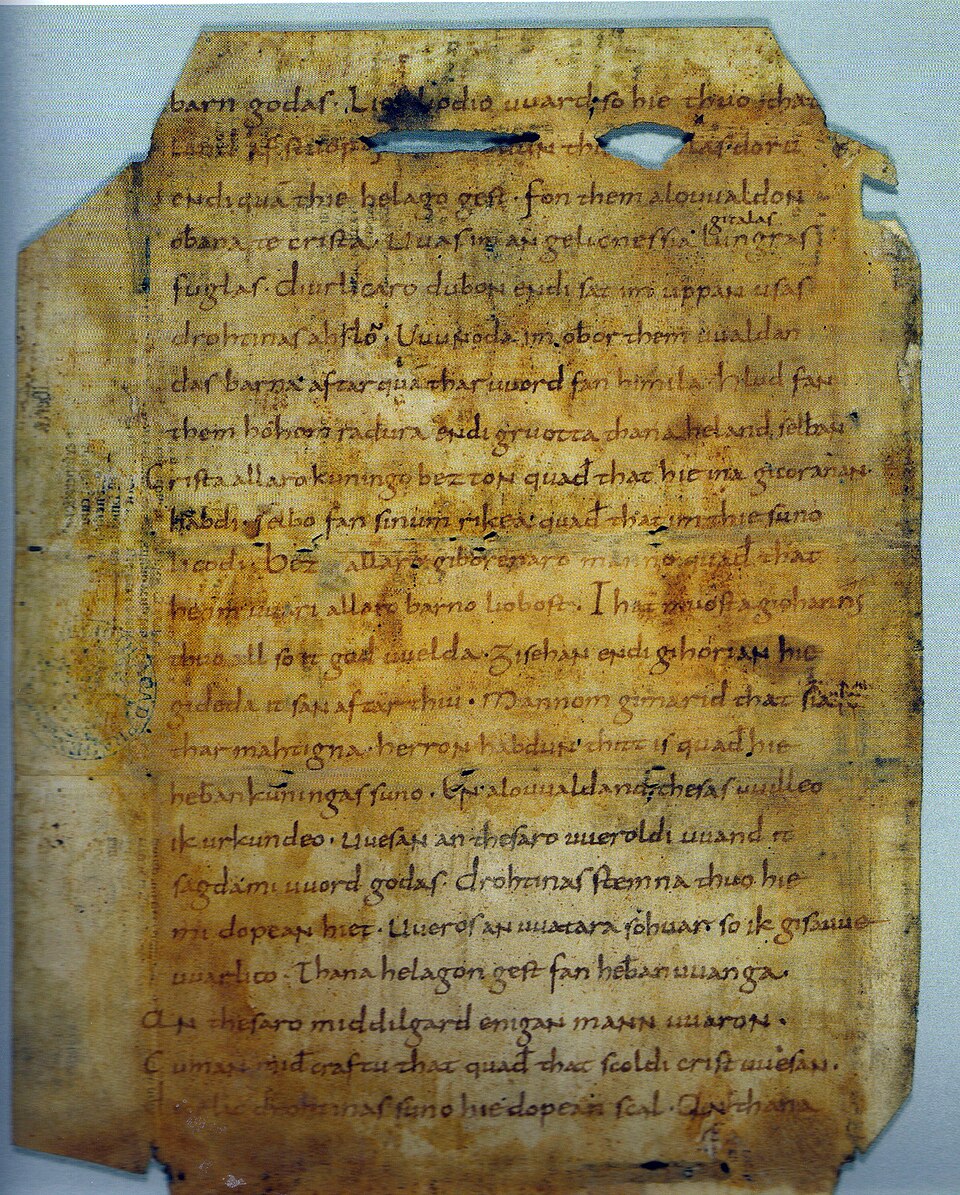 barn godas. Lio liodio uuard; so hie thuo that
land af st thi las doru
endi quā thie helago gest. fon them alouualdon
oƀana te crista. Uuas im an gelicnessia lungras gitalas
fuglas. diurlicaro duƀon endi sat im uppan usas
drohtinas ahslō. Uuunoda im oƀor them uualdan
das barna aftar quā thar uuord fan himila. hlud fan
them hohom radura endi gruotta thana heland selƀan
Crista allaro kuningo bezton quađ that hie ina gicoranan
habdi. selƀo fan sinum rikea. quađ that im thie suno
licodi. Bez allaro giborenaro manno quađ that
he im uuari allaro barno lioƀost. That muosta giohannes
thuo all so it god uuelda. Zisehan endi gihorian hie
gideda it san aftar thiu. Mannom gimarid that sia
thar mahtigna. herron habdun thitt is quađ hie
heƀankuningas suno. En alouualdand; thesas uuilleo
ik urkundeo. uuesan an thesaro uueroldi uuand it
sagda mi uuord godas. drohtinas stemna thuo hie
mi dopean hiet. Uueros an uuatara so huar. so ik gisauue
uuarlico. Thana helagon gest fan heƀanuuanga.
An thesaro middilgard enigan mann uuaron.
Cuman mid craftu that quađ that scoldi crist uuesan.
diurlic drohtinas suno hie dopean scal. An thana